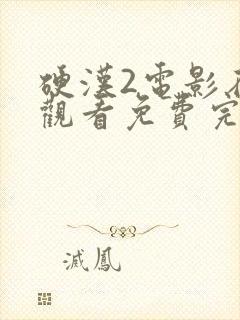 硬漢2電影在
觀看免費完
滅鳳